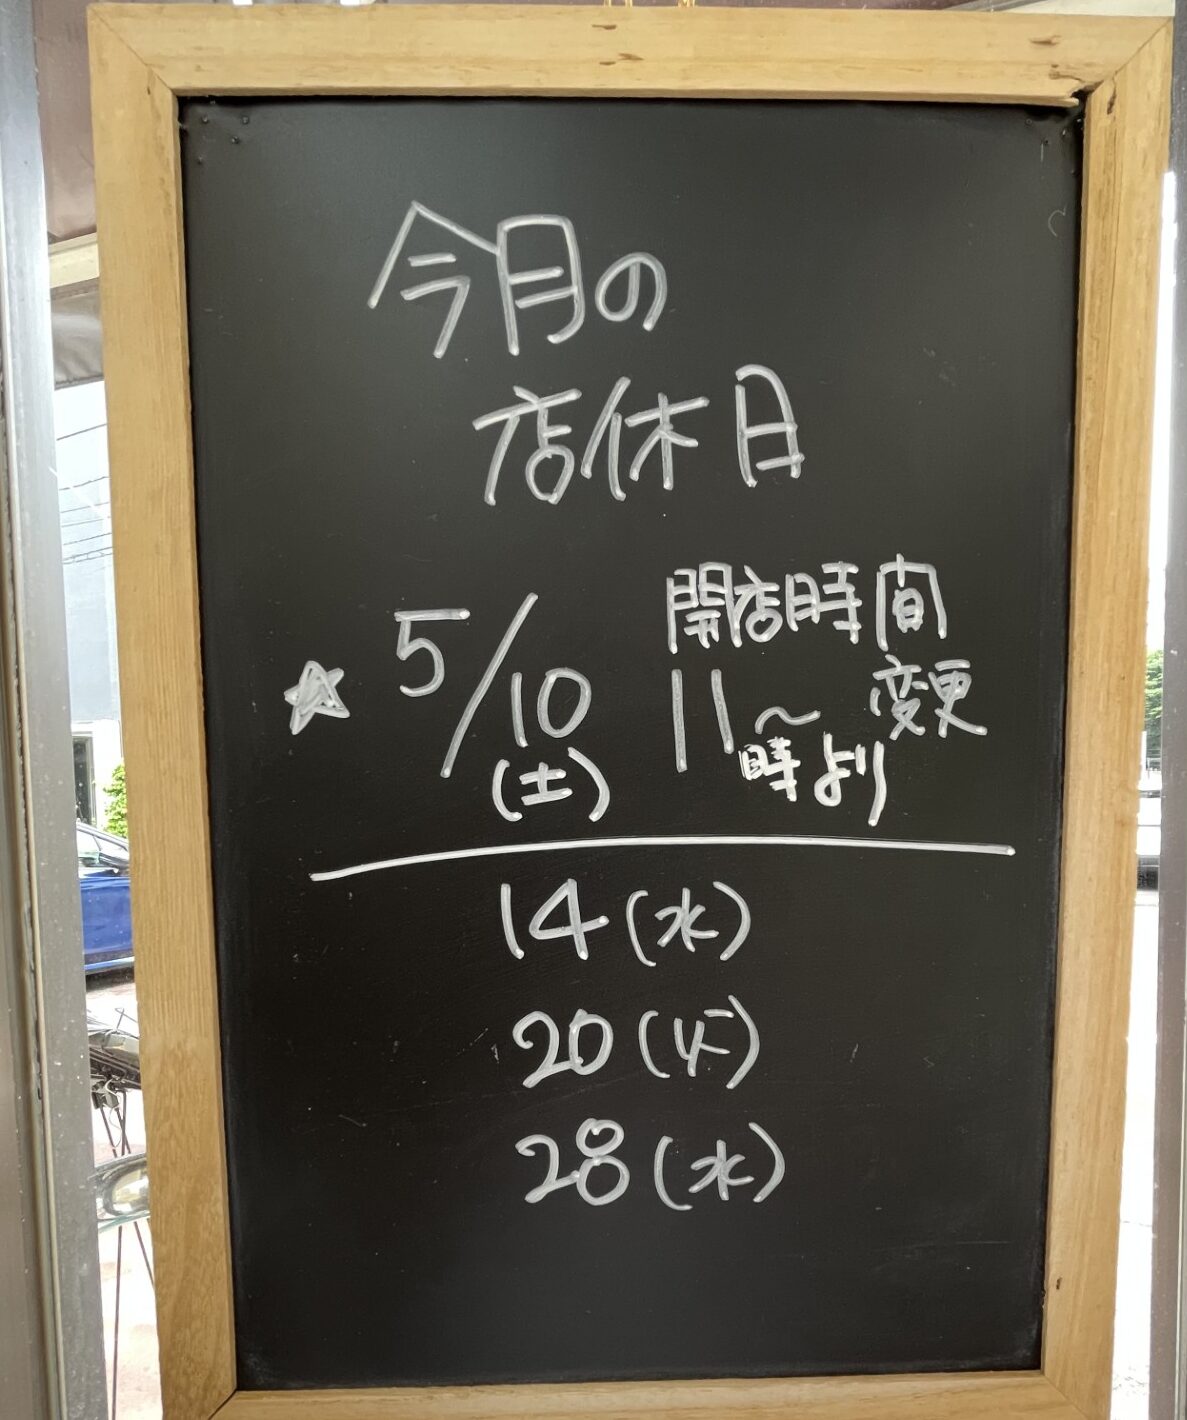 今月の
店休日
☆ 5/10 (土)
開店時間
変更
11時〜より
14(水)
20(火)
28(水)